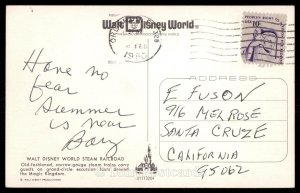 Walt Disney World®
PEOPLE'S RIGHT TO
1980
Have no
fear
Summer
is near
ADDRESS
E FUSON
916 MELROSE
SANTA CRUZE
CALIFORNIA
95062
WALT DISNEY WORLD STEAM RAILROAD
Old-fashioned, narrow-gauge steam trains carry
guests on grand-circle excursion tours around
the Magic Kingdom.
© WALT DISNEY PRODUCTIONS